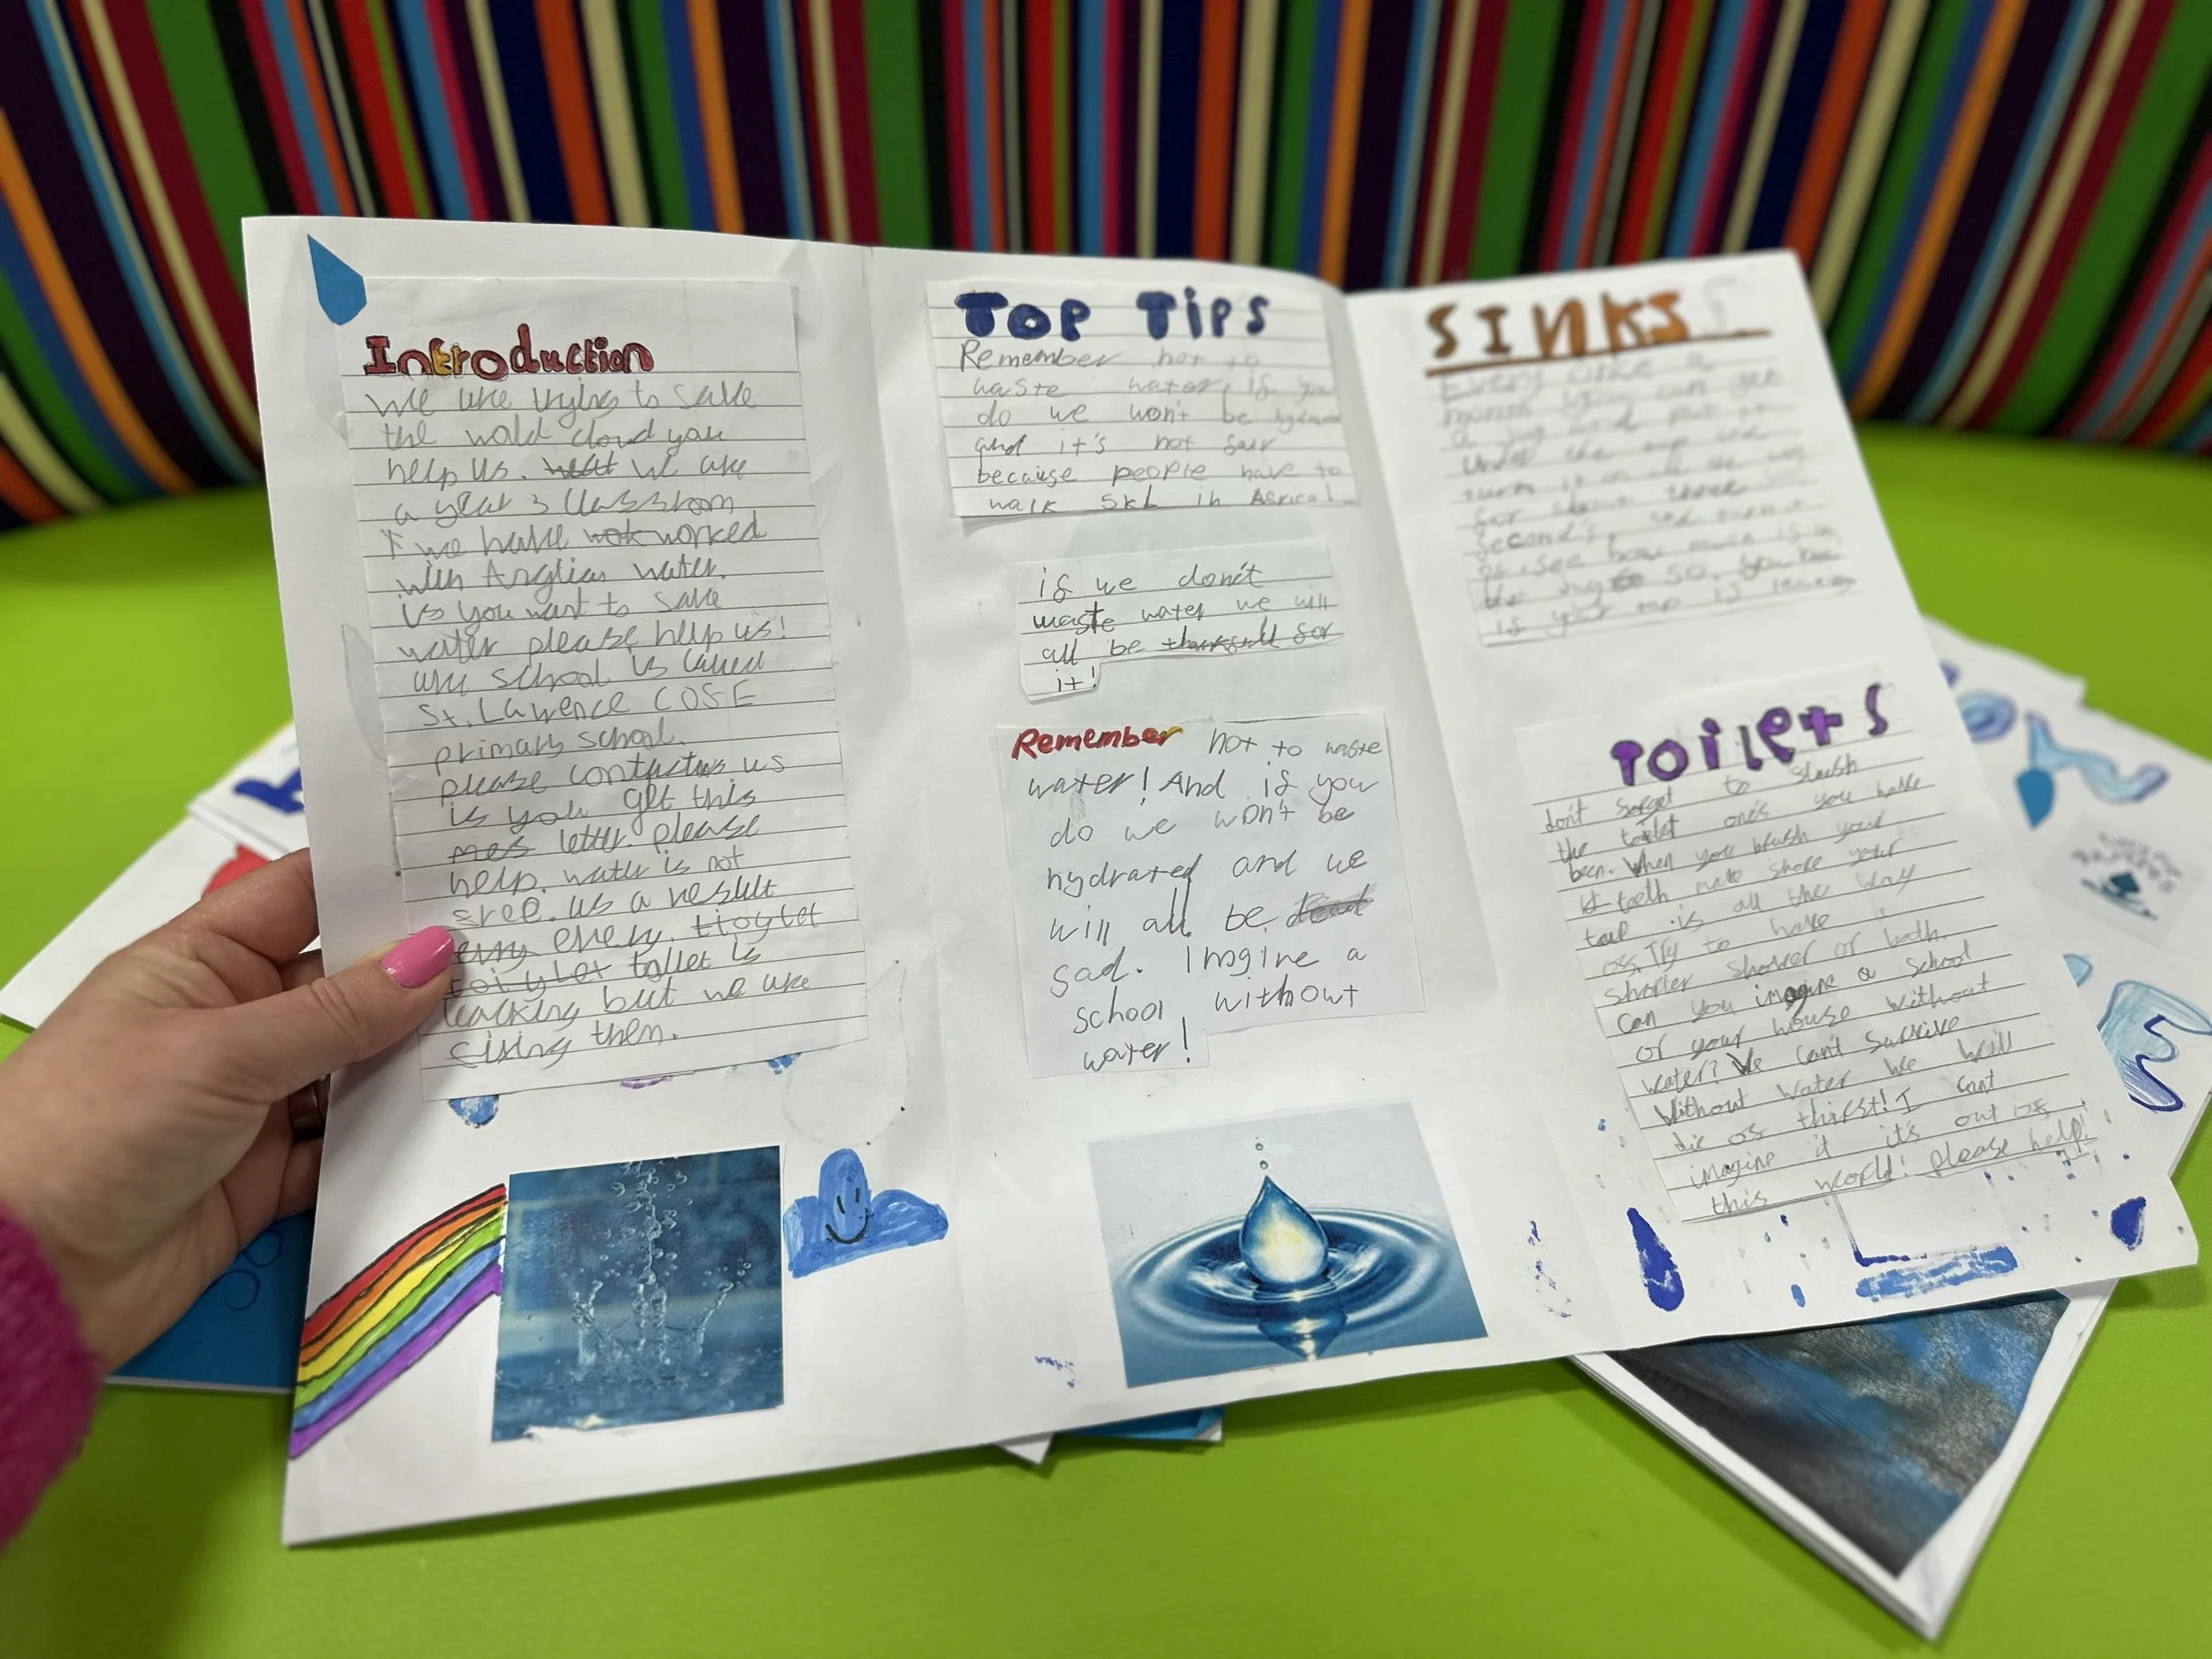 Introduction
We are trying to save
the wold cloud you
help us. we are
a year 3 classroom
we have worked
with Anglian water.
if you want to save
water please help us!
are school is called
St. Lawrence COFE
primary school.
please contact us
if you get this
letter. please
help. water is not
free. as a result
every.
toilet is
leacking but we are
fixing them.
Top Tips
Remember not to
waste water, if you
do we won't be
and it's not fair
because people have to
walk 5kL in Africa!
if we don't
waste water we will
all be thankfull for
it!
Remember not to waste
water! And if you
do we won't be
hydrated and we
will all be dead
sad. Imgine a
school without
water!
SINKS
Every once a
month you can get
a jug and put it
under the tap and
turn it on all the way
for about three
second's, and turn it
of, see how much is in
the jug so you know
if your tap is leaking
Toilets
don't forget to flush
the toilet one's you have
been. When you brush your
teeth make shore your
tap is all the way
of. Try to have
shorter shower or bath.
Can you imagine a school
or your house without
water? We can't survive
without water we will
die of thirst! I cant
imagine it its out of
this world! please help!